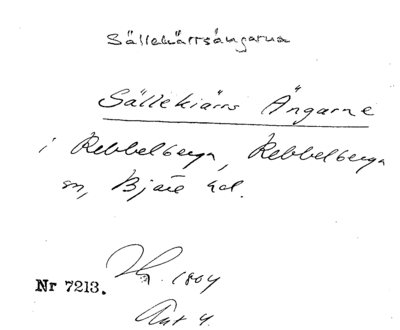 Sällekärrsängarna
Sällekiärrs Ängarne
i Rebbelberga, Rebbelberga
sn, Bjäre hd.
1804
Nr 7213.
Akt 4.